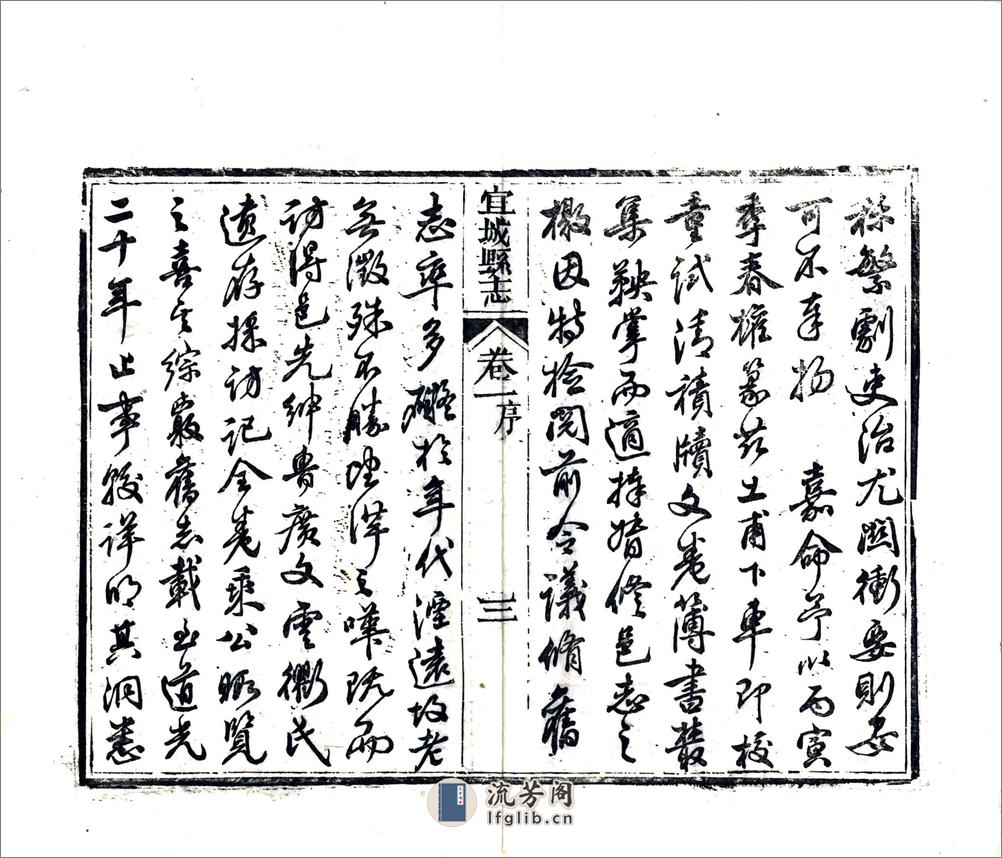 稱繁劇吏治尤關衝要則安
可不奉揚　嘉命予以丙寅
季春權篆茲土甫下車即校
童試清積牘文卷簿書叢
集鞅掌而適捧督修邑志之
檄因特檢閱前令議脩舊
宜城縣志
卷一序
三
志率多殘於年代湮遠故老
無徵殊不勝望洋之嘆既而
訪得邑先紳魯廣文雲衢氏
遺存採訪記全卷乘公暇覽
之喜其綜覈舊志載至道光
二十年止事較詳明其洞悉
流芳阁
lfglib.cn